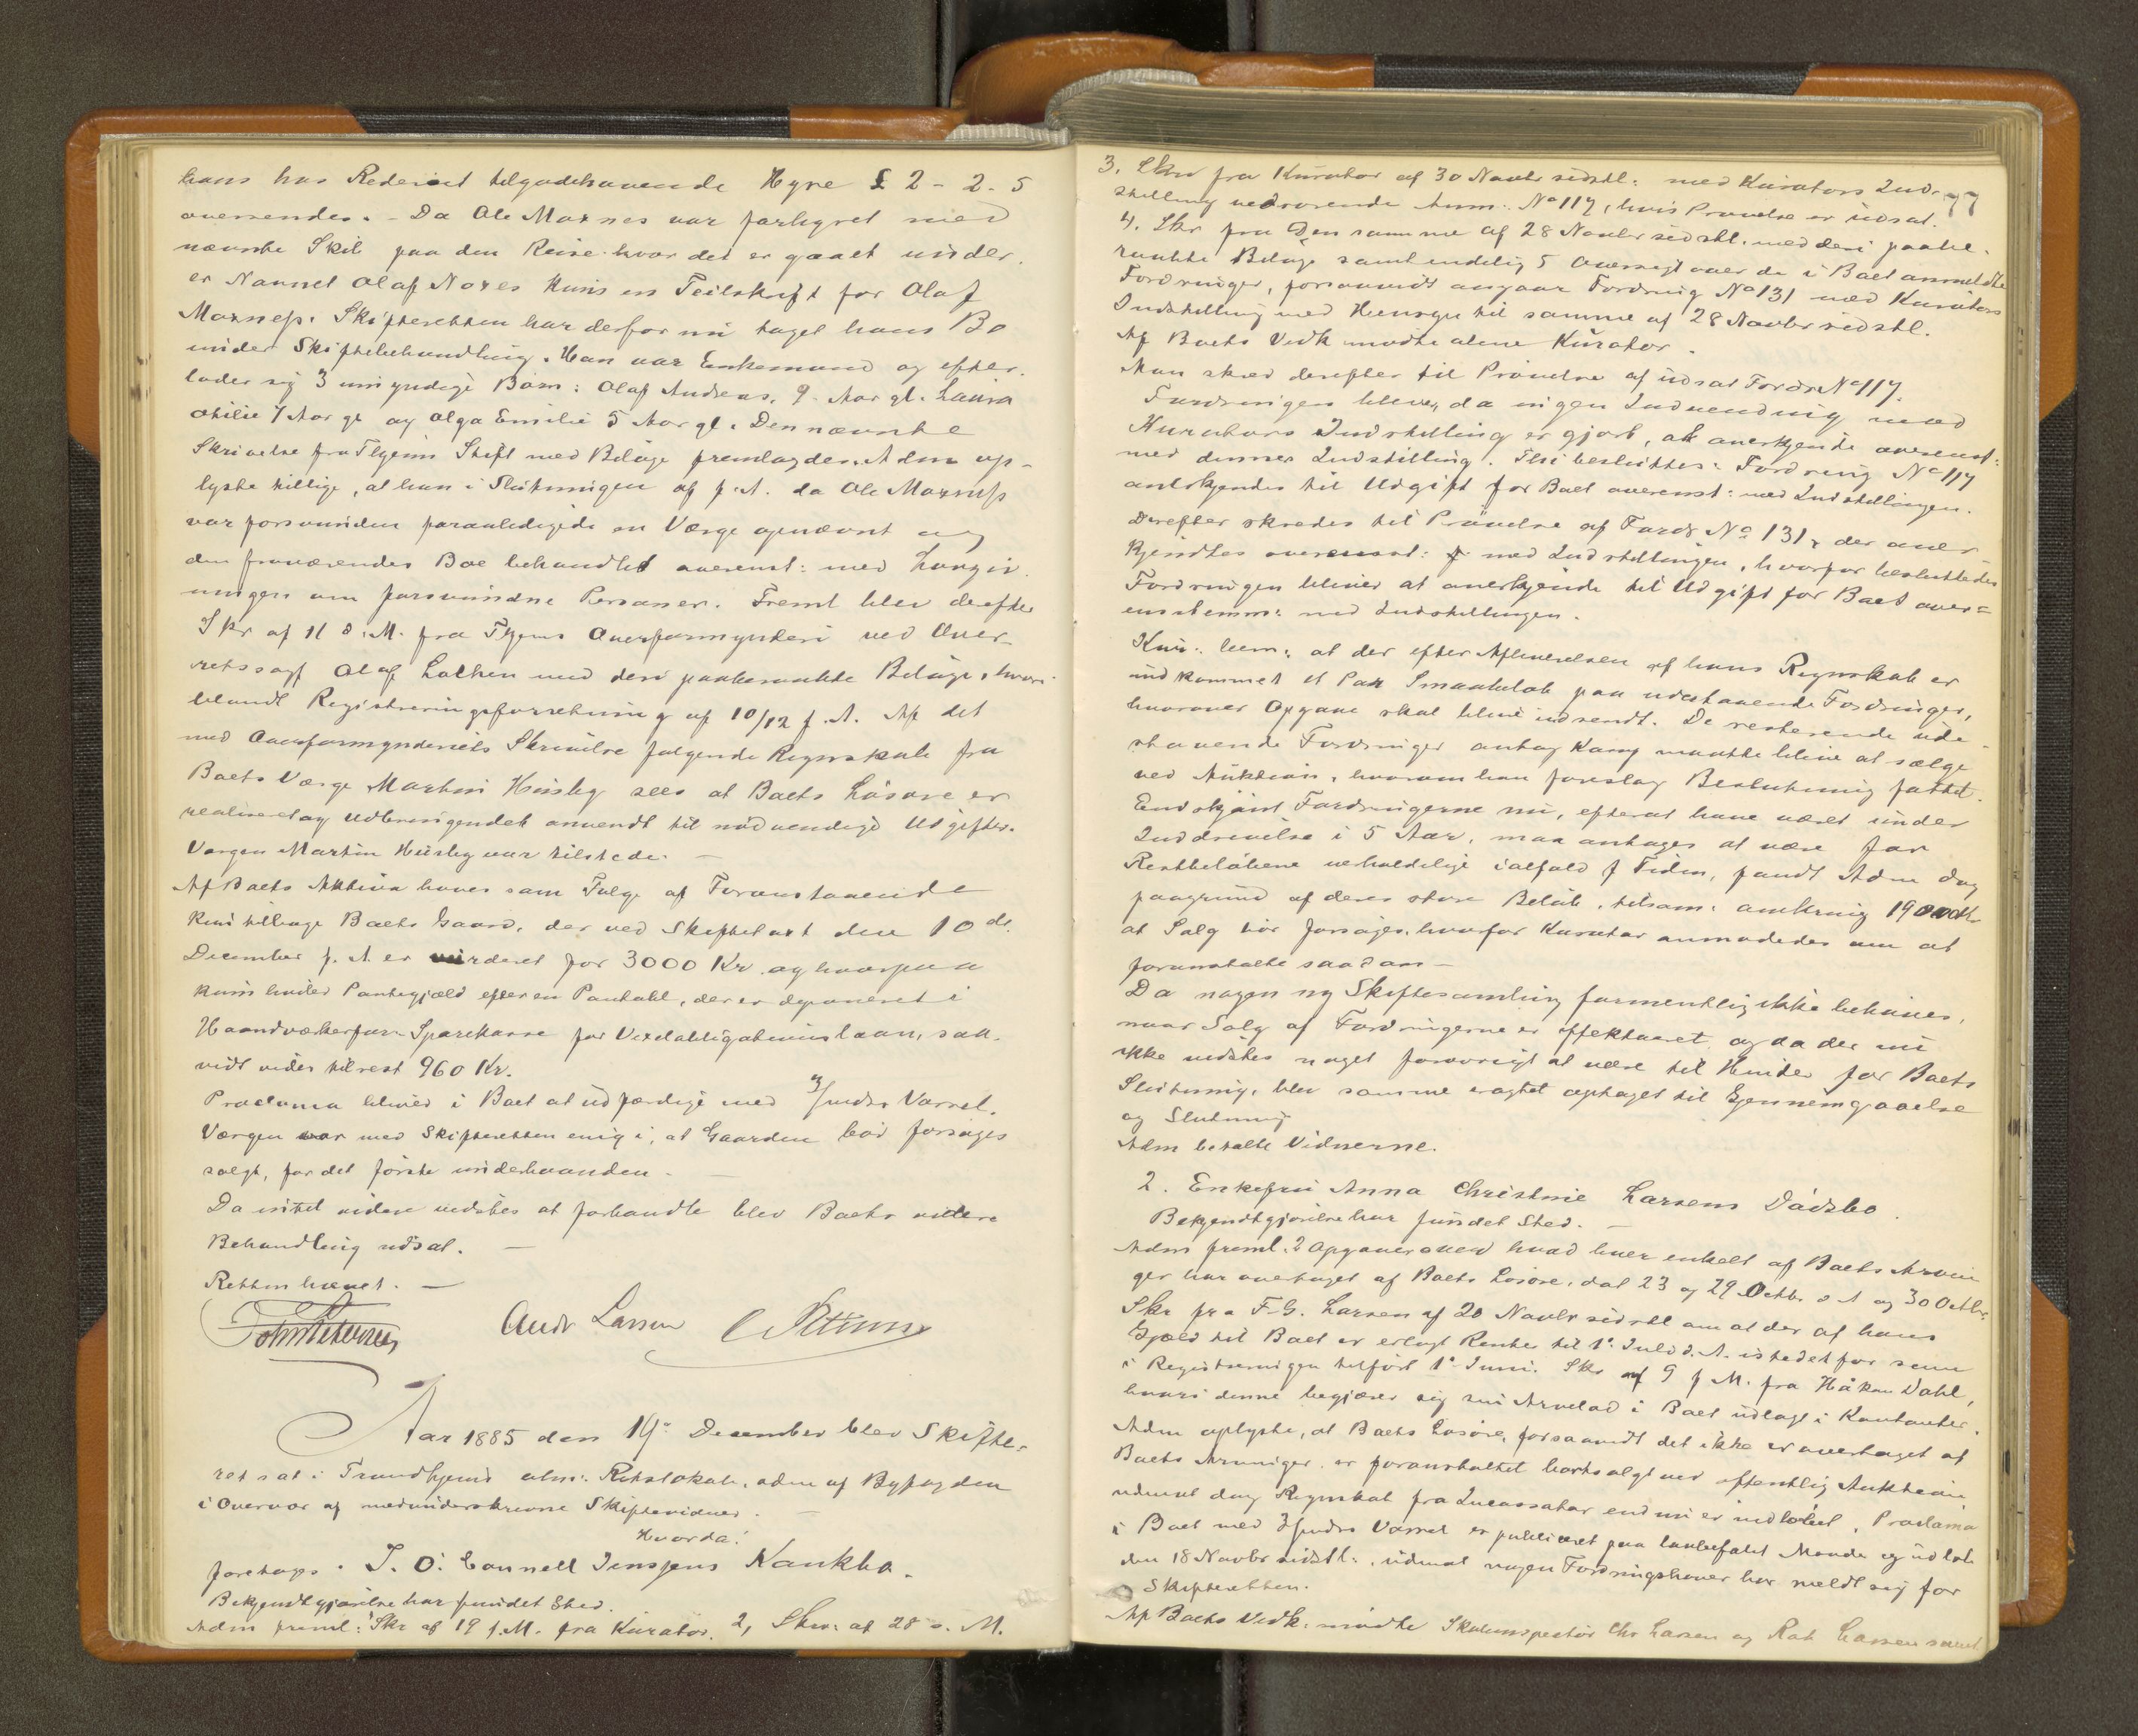 hans hos Rederiet tilgodehavende Hyre £ 2 - 2 - 5
oversendes. - Da Ole Moxnes var forhyret med
nævnte Skib paa den Reise hvor det er gaaet under,
er Navnet Olaf Noxes kuns en Feilskrift for Olaf
Moxness. Skifteretten har derfor nu taget hans Bo
under Skiftebehandling. Han var Enkemand og efter-
lader sig 3 umyndige Børn: Olaf Andreas, 9 Aar gl. Laura
Otilie 7 Aar gl og Olga Emilie 5 Aar gl. Den nævnte
Skrivelse fra Thjems Stift med Bilage fremlagdes. Adm op-
lyste tillige, at han i Slutningen af f. A. da Ole Moxness
var forsvunden foranledigede en Værge opnævnt og
den fraværendes Boe behandlet overenst: med Lovgiv-
ningen om forsvundne Personer. Freml blev derefter
Skr af 11 d. M. fra Thjems Overformynderi ved Over-
retssagf Olaf Lothen med deri paaberaabte Bilage, hvori-
blandt Registreringsforretning af 10/12 f. A. Af det
med Overformynderiets Skrivelse følgende Regnskab fra
Boets Værge Martin Husby sees at Boets Løsøre er
realiseret og Udbringendet anvendt til nødvendige Udgifter.
Værgen Martin Husby var tilstede. —
Af Boets Aktiva haves som Følge af Foranstaaende
kun tilbage Boets Gaard, der ved Skiftetaxt den 10 de
December f. A. er vurderet for 3000 Kr. og hvorpaa
kuns hviler Pantegjæld efter en Pantobl, der er deponeret i
Haandværkerforn Sparekasse for Vexelobligationslaan, saa-
vidt vides tilrest 960 Kr.
Proclama bliver i Boet at udfærdige med 3/mdrs Varsel.
Værgen var med Skifteretten enig i, at Gaarden bør forsøges
solgt, for det første underhaanden. —
Da intet videre vidstes at forhandle blev Boets videre
Behandling udsat. —
Retten hævet. —
Andr Larsen
Aar 1885 den 19de December blev Skifte-
ret sat i Trondhjems alm: Retslokale, adm af Byfogden
i Overvær af medunderskrevne Skiftevidner. —
Hvorda:
foretoges 1. J. O'Connell Jenssens Konkbo.
Bekjendtgjørelse har fundet Sted.
Adm freml: 1, Skr af 19 f. M. fra Kurator. 2, Skr: af 28 s. M.
77
3, Skr fra Kurator af 30 Novbr sidstl: med Kurators Ind-
stilling vedrørende Anm: No 117, hvis Prøvelse er udsat.
4. Skr fra Den samme af 28 Novbr sidstl. med deri paabe-
raabte Bilage samt endelig 5 Oversigt over de i Boet anmeldte
Fordringer, forsaavidt angaar Fordring No 131 med Kurators
Indstilling med Hensyn til samme af 28 Novbr sidstl.
Af Boets Vedk mødte alene Kurator.
Man skred derefter til Prøvelse af udsat Fordr No 117.
Fordringen bliver, da ingen Indvending mod
Kurators Indstilling er gjort, at anerkjende overenst:
med dennes Indstilling. Thi besluttes: Fordring No 117
anerkjendes til Udgift for Boet overenst: med Indstillingen.
Derefter skredes til Prøvelse af Fordr No 131, der aner-
kjendtes overensst: med Indstillingen, hvorfor besluttedes
Fordringen bliver at anerkjende til Udgift for Boet over=
ensstemm: med Indstillingen.
Kur: bem: at der efter Aflæverelsen af hans Regnskab er
indkommet et Par Smaabeløb paa udestaaende Fordringer,
hvorover Opgave skal blive indsendt. De resterende ude-
staaende Fordringer antog Komp maatte blive at sælge
ved Auktion, hvorom han foreslog Beslutning fattet.
Endskjønt Fordringerne nu, efterat have været under
Inddrivelse i 5 Aar, maa antages at være for
Restbeløbene uerholdelige ialfald f Tiden, fandt Adm dog
paagrund af deres store Beløb, tilsam: omkring 19000 Kr
at Salg bør forsøges, hvorfor Kurator anmodedes om at
foranstalte saadan —
Da nogen ny Skiftesamling formentlig ikke behøves,
naar Salg af Fordringerne er effektueret, og da der nu
ikke vidstes noget forøvrigt at være til Hinder for Boets
Slutning, blev samme eragtet optaget til Gjennemgaaelse
og Slutning
Adm betalte Vidnerne.
2. Enkefru Anna Christine Larsens Dødsbo.
Bekjendtgjørelse har fundet Sted. —
Adm freml. 2 Opgaver over hvad hver enkelt af Boets Arvin-
ger har overtaget af Boets Løsøre, dat 23 og 29 Octbr d A og 30 Octbr.
Skr fra F. G. Larsen af 20 Novbr sidstl om at der af hans
Gjæld til Boet er erlagt Renter til 1ste Juli d. A. istedetfor som
i Registreringen tilført 1ste Juni. Skr af 9 f M. fra Håkon Dahl,
hvori denne begjærer sig sin Arvelod i Boet udlagt i Kontanter.
Adm oplyste, at Boets Løsøre, forsaavidt det ikke er overtaget af
Boets Arvinger, er foranstaltet bortsolgt ved offentlig Auktion,
uden at dog Regnskab fra Incassator endnu er indløbet. Proclama
i Boet med 3/mdrs Varsel er publiceret paa lovbefalet Maade og udløb
den 18 Novbr sidstl:, uden at nogen Fordringshaver har meldt sig for
Skifteretten.
Af Boets Vedk: mødte Skoleinspektør Chr Larsen og Rob Larsen samt